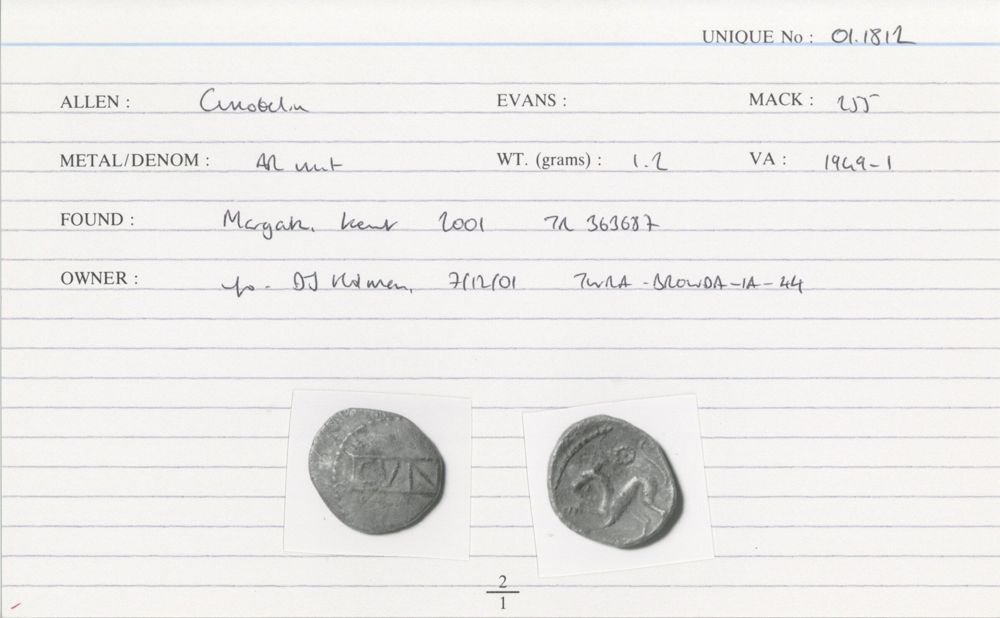 UNIQUE No : 01.1812
ALLEN : Cunobelin EVANS : MACK : 255
METAL/DENOM : AR unit WT. (grams) : 1.2 VA : 1949-1
FOUND : Margate, Kent 2001 TR 363687
OWNER : DJ 7/12/01 -IA-44
CVN
2
1